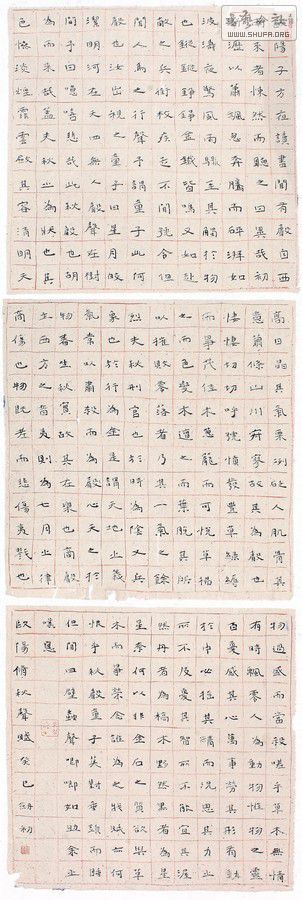 陽子方夜讀書聞有聲自西
南來者悚然而聽之曰異哉初
淅瀝以蕭颯忽奔騰而砰湃如
波濤夜驚風雨驟至其觸於物
也鏦鏦錚錚金鐵皆鳴又如赴
敵之兵銜枚疾走不聞號令但
聞人馬之行聲予謂童子此何
聲也汝出視之童子曰星月皎
潔明河在天四無人聲聲在樹
間予曰噫嘻悲哉此秋聲也胡
為而來哉蓋夫秋之為狀也其
色慘淡煙霏雲斂其容清明天
高日晶其氣慄冽砭人肌骨其
意蕭條山川寂寥故其為聲也
淒淒切切呼號憤發豐草綠縟
而爭茂佳木蔥蘢而可悅草拂
之而色變木遭之而葉脫其所
以摧敗零落者乃其一氣之餘
烈夫秋刑官也於時為陰又兵
象也於行為金是謂天地之義
氣常以肅殺而為心天之於
物春生秋實故其在樂也商聲
主西方之音夷則為七月之律
商傷也物既老而悲傷夷戮也
物過盛而當殺嗟乎草木無情
有時飄零人為動物惟物之靈
百憂感其心萬事勞其形有動
於中必搖其精而況思其力之
所不及憂其智之所不能宜其渥
然丹者為槁木黟然黑者為星
星奈何以非金石之質欲與草
木而爭榮念誰為之戕賊亦何
恨乎秋聲童子莫對垂頭而睡
但聞四壁蟲聲唧唧如助余之
嘆息
歐陽脩秋聲賦癸巳初
WWW.SHUFA.ORG